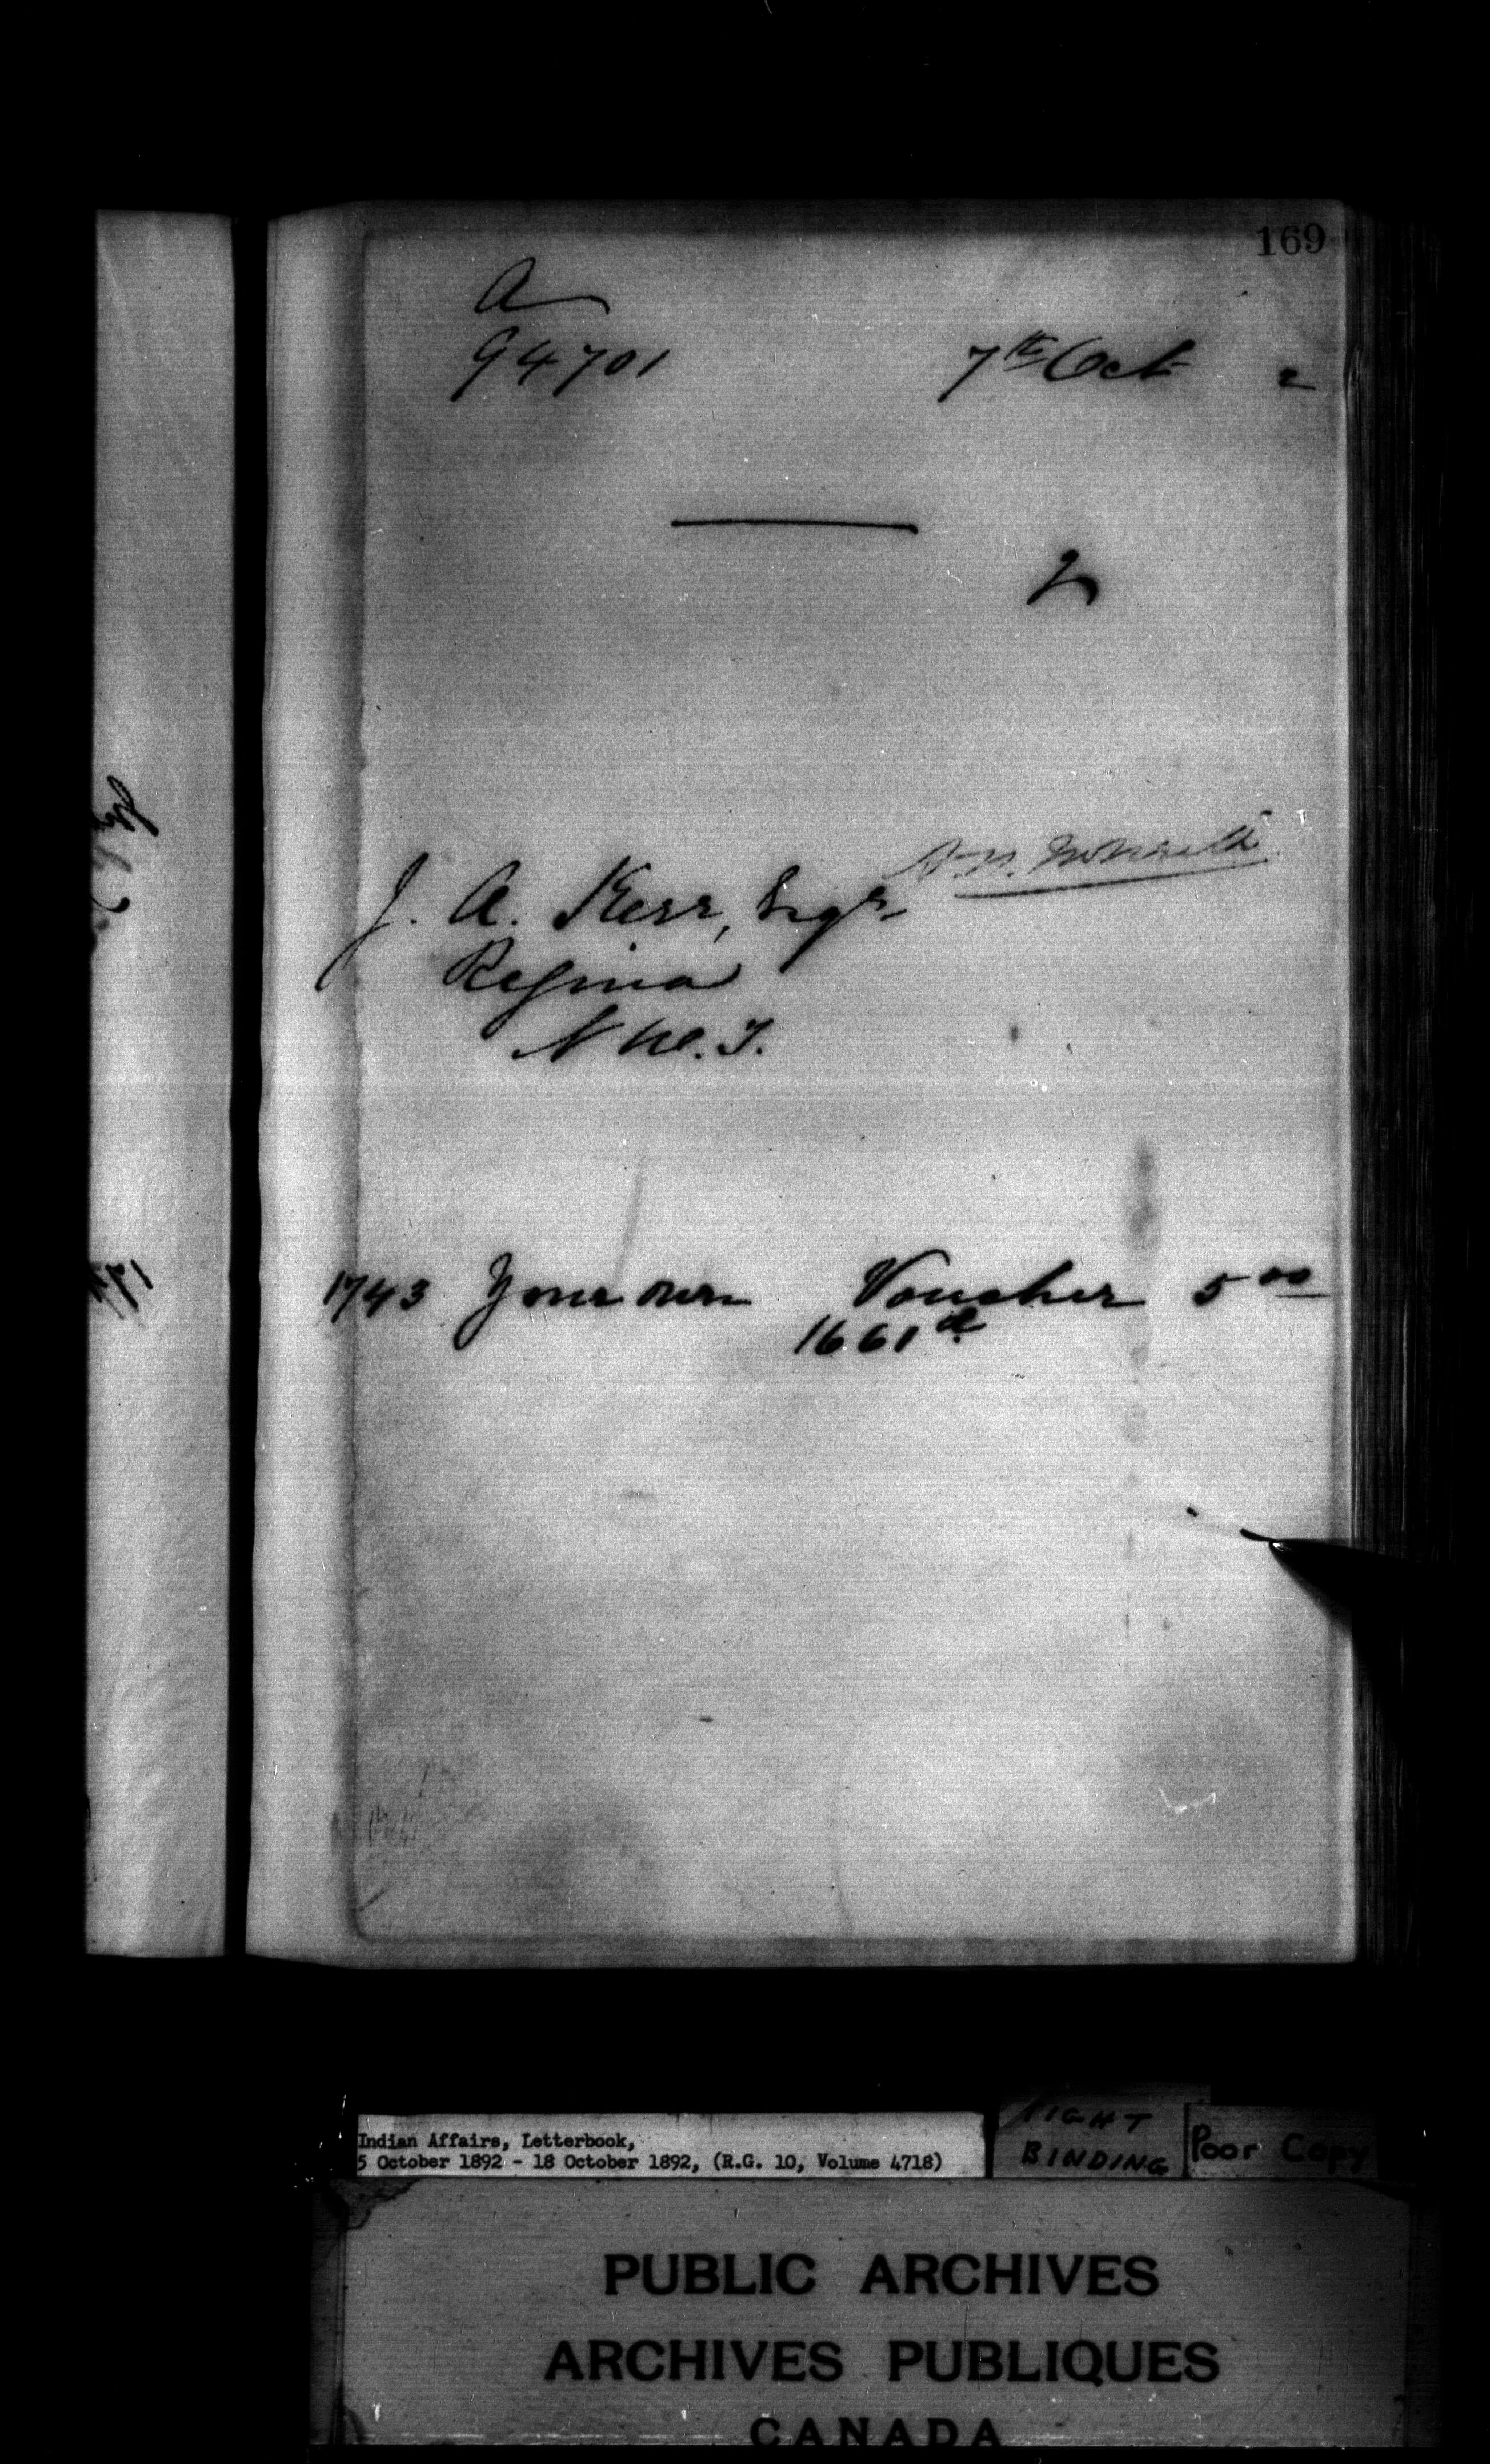 169
A
94701 7th Oct 2
J. A. Kerr, Esqr.
Regina
N.W.T.
1743 Your own Voucher 5 00
1661
Indian Affairs, Letterbook,
5 October 1892 - 18 October 1892, (R.G. 10, Volume 4718)
TIGHT
BINDING
Poor Copy
PUBLIC ARCHIVES
ARCHIVES PUBLIQUES
CANADA